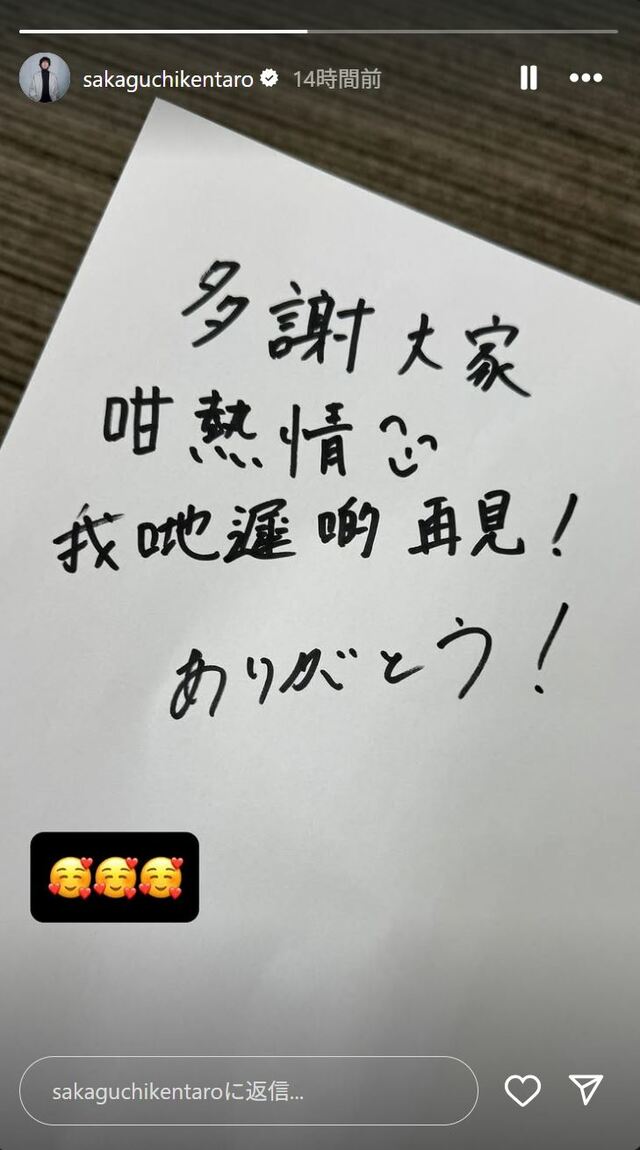 sakaguchikentaro 14時間前
多謝大家
咁熱情
我哋遲啲再見！
ありがとう！
🥰🥰🥰
sakaguchikentaroに返信...